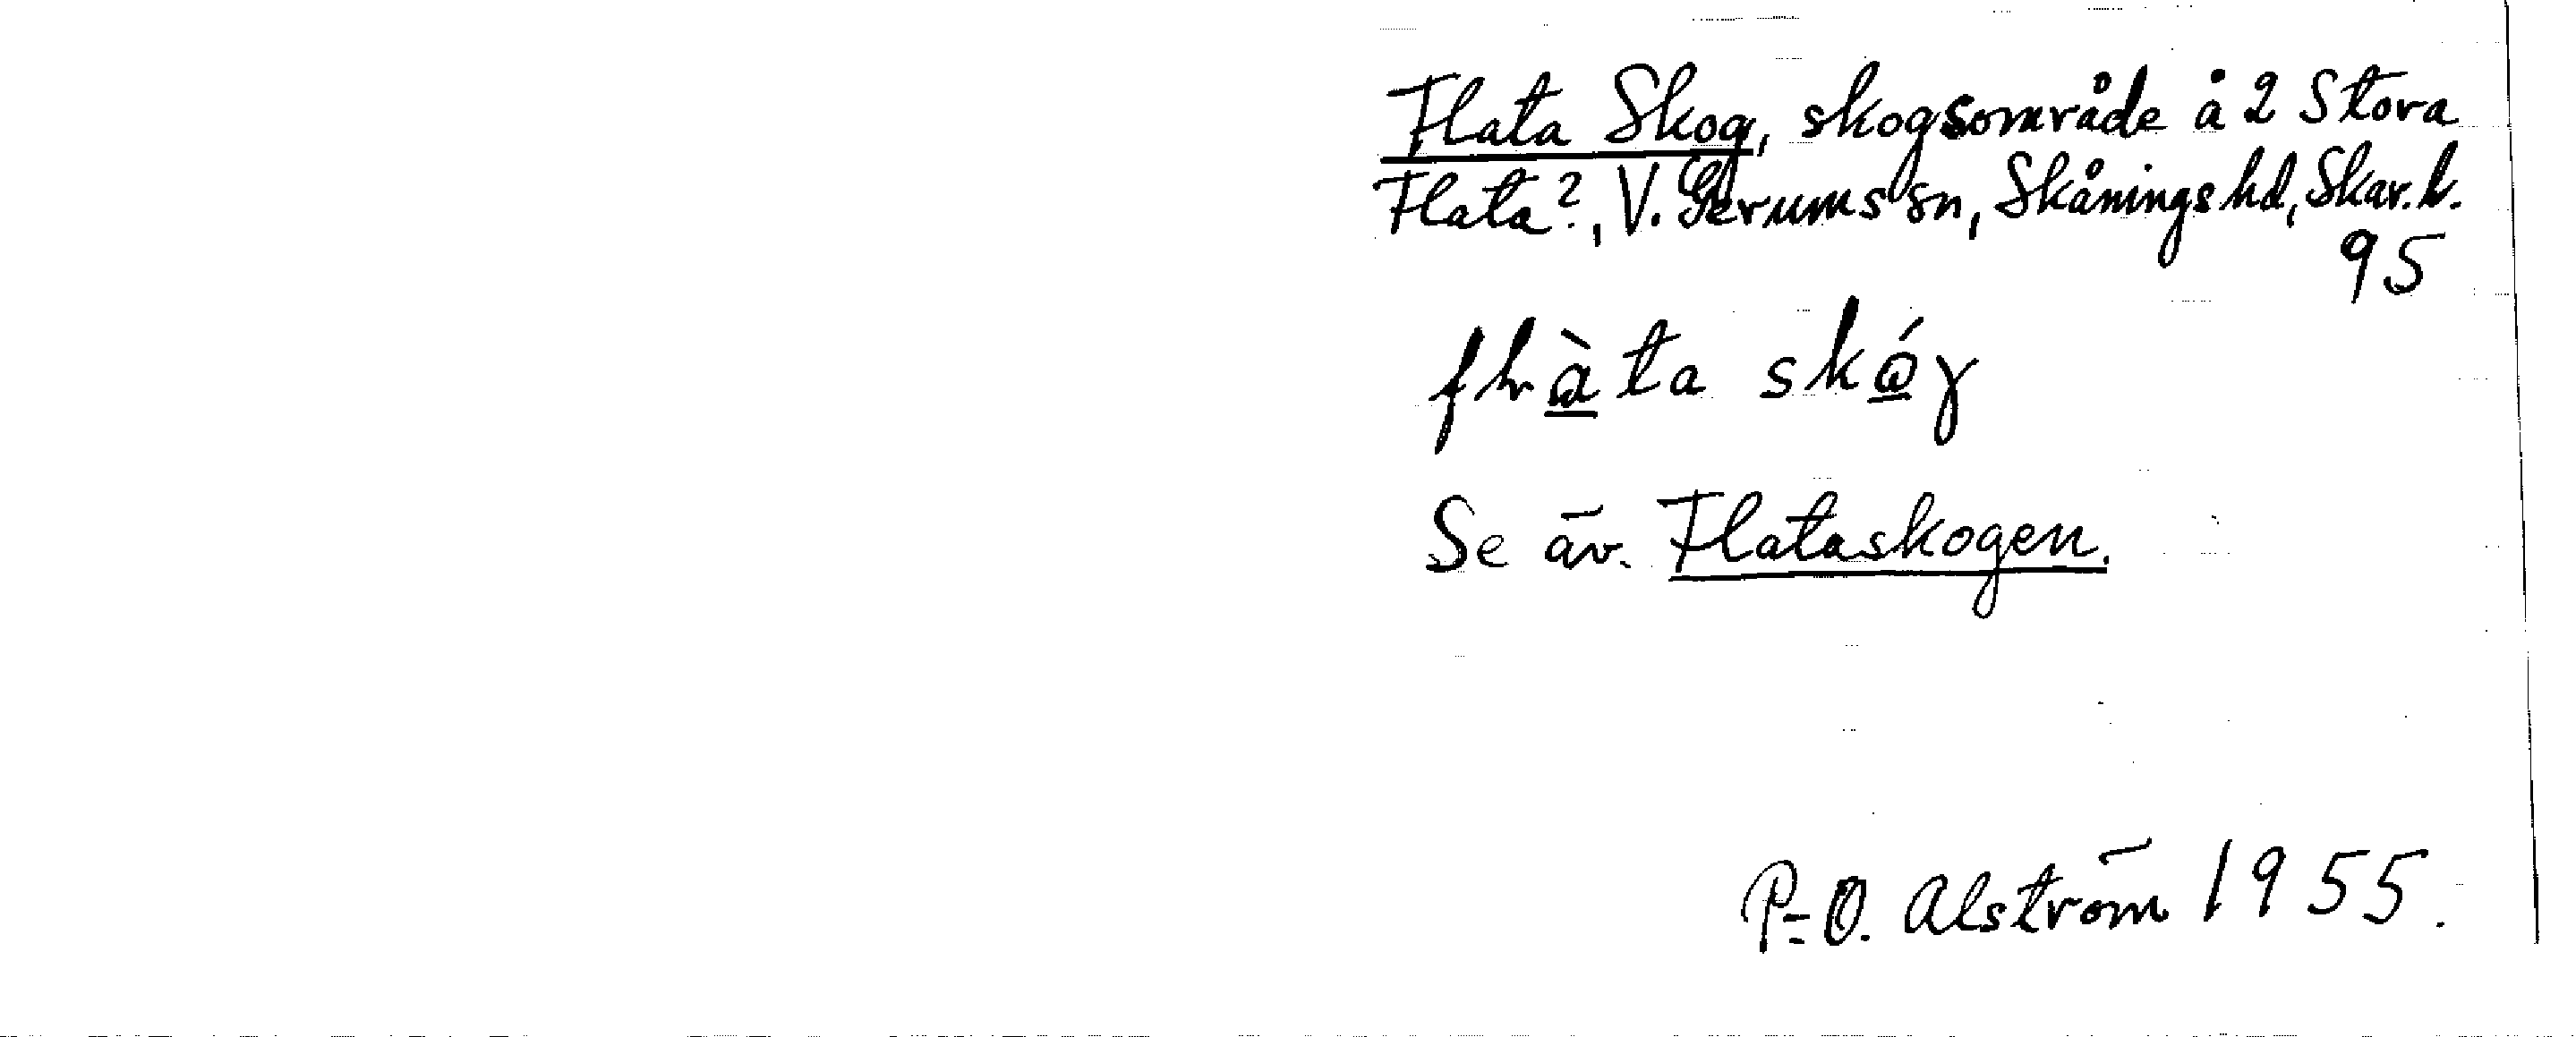 Flata Skog, skogsområde å 2 Stora
Flata?, V. Gerums sn, Skånings hd, Skar. b.
95
Se äv. Flataskogen.
P-O. Alström 1955.